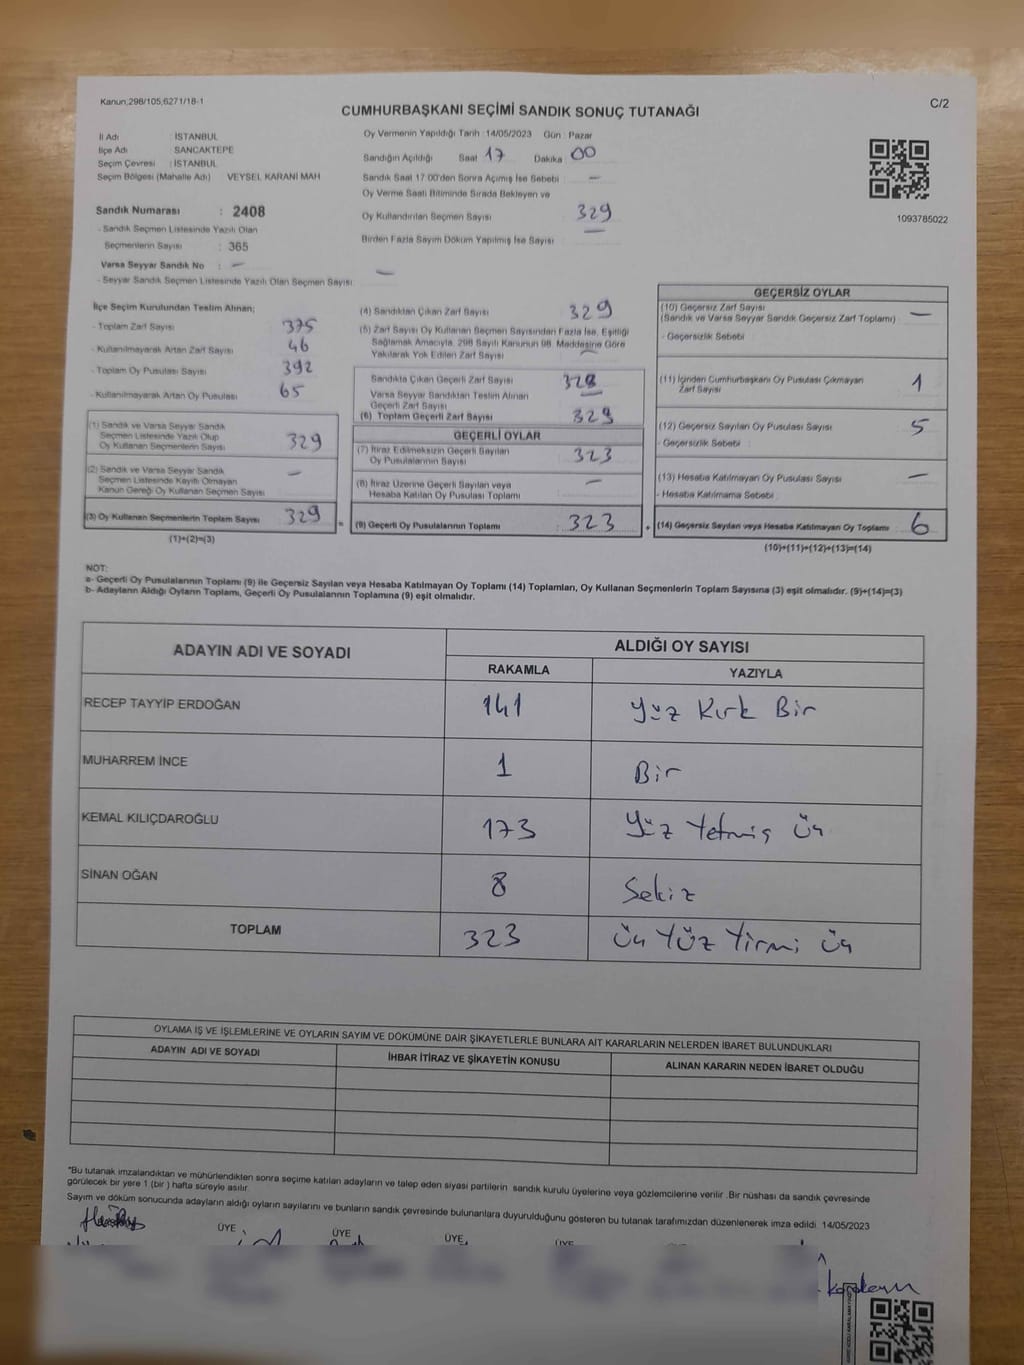 Kanun;298/105,6271/18-1
C/2
CUMHURBAŞKANI SEÇİMİ SANDIK SONUÇ TUTANAĞI
İl Adı : İSTANBUL
İlçe Adı : SANCAKTEPE
Seçim Çevresi : İSTANBUL
Seçim Bölgesi (Mahalle Adı) VEYSEL KARANİ MAH
Sandık Numarası : 2408
- Sandık Seçmen Listesinde Yazılı Olan
Seçmenlerin Sayısı : 365
Varsa Seyyar Sandık No : -
- Seyyar Sandık Seçmen Listesinde Yazılı Olan Seçmen Sayısı: -
Oy Vermenin Yapıldığı Tarih :14/05/2023 Gün : Pazar
Sandığın Açıldığı Saat 17 Dakika 00
Sandık Saat 17:00'den Sonra Açılmış İse Sebebi : -
Oy Verme Saati Bitiminde Sırada Bekleyen ve
Oy Kullandırılan Seçmen Sayısı : 329
Birden Fazla Sayım Döküm Yapılmış İse Sayısı : -
1093785022
İlçe Seçim Kurulundan Teslim Alınan;
- Toplam Zarf Sayısı : 375
- Kullanılmayarak Artan Zarf Sayısı : 46
- Toplam Oy Pusulası Sayısı : 392
- Kullanılmayarak Artan Oy Pusulası : 65
(1) Sandık ve Varsa Seyyar Sandık
Seçmen Listesinde Yazılı Olup
Oy Kullanan Seçmenlerin Sayısı : 329
(2) Sandık ve Varsa Seyyar Sandık
Seçmen Listesinde Kayıtlı Olmayan
Kanun Gereği Oy Kullanan Seçmen Sayısı : -
(3) Oy Kullanan Seçmenlerin Toplam Sayısı : 329
(1)+(2)=(3)
(4) Sandıktan Çıkan Zarf Sayısı : 329
(5) Zarf Sayısı Oy Kullanan Seçmen Sayısından Fazla İse, Eşitliği
Sağlamak Amacıyla, 298 Sayılı Kanunun 98. Maddesine Göre
Yakılarak Yok Edilen Zarf Sayısı : -
Sandıkta Çıkan Geçerli Zarf Sayısı : 328
Varsa Seyyar Sandıktan Teslim Alınan
Geçerli Zarf Sayısı : -
(6) Toplam Geçerli Zarf Sayısı : 329
GEÇERLİ OYLAR
(7) İtiraz Edilmeksizin Geçerli Sayılan
Oy Pusulalarının Sayısı : 323
(8) İtiraz Üzerine Geçerli Sayılan veya
Hesaba Katılan Oy Pusulası Toplamı : -
= (9) Geçerli Oy Pusulalarının Toplamı : 323
GEÇERSİZ OYLAR
(10) Geçersiz Zarf Sayısı
(Sandık ve Varsa Seyyar Sandık Geçersiz Zarf Toplamı) : -
- Geçersizlik Sebebi :
(11) İçinden Cumhurbaşkanı Oy Pusulası Çıkmayan
Zarf Sayısı : 1
(12) Geçersiz Sayılan Oy Pusulası Sayısı : 5
- Geçersizlik Sebebi :
(13) Hesaba Katılmayan Oy Pusulası Sayısı : -
- Hesaba Katılmama Sebebi :
+ (14) Geçersiz Sayılan veya Hesaba Katılmayan Oy Toplamı : 6
(10)+(11)+(12)+(13)=(14)
NOT:
a- Geçerli Oy Pusulalarının Toplamı (9) ile Geçersiz Sayılan veya Hesaba Katılmayan Oy Toplamı (14) Toplamları, Oy Kullanan Seçmenlerin Toplam Sayısına (3) eşit olmalıdır. (9)+(14)=(3)
b- Adayların Aldığı Oyların Toplamı, Geçerli Oy Pusulalarının Toplamına (9) eşit olmalıdır.
ADAYIN ADI VE SOYADI ALDIĞI OY SAYISI
RAKAMLA YAZIYLA
RECEP TAYYİP ERDOĞAN 141 Yüz Kırk Bir
MUHARREM İNCE 1 Bir
KEMAL KILIÇDAROĞLU 173 Yüz Yetmiş Üç
SİNAN OĞAN 8 Sekiz
TOPLAM 323 Üç Yüz Yirmi Üç
OYLAMA İŞ VE İŞLEMLERİNE VE OYLARIN SAYIM VE DÖKÜMÜNE DAİR ŞİKAYETLERLE BUNLARA AİT KARARLARIN NELERDEN İBARET BULUNDUKLARI
ADAYIN ADI VE SOYADI İHBAR İTİRAZ VE ŞİKAYETİN KONUSU ALINAN KARARIN NEDEN İBARET OLDUĞU
"Bu tutanak imzalandıktan ve mühürlendikten sonra seçime katılan adayların ve talep eden siyasi partilerin sandık kurulu üyelerine veya gözlemcilerine verilir .Bir nüshası da sandık çevresinde
görülecek bir yere 1 (bir ) hafta süreyle asılır.
Sayım ve döküm sonucunda adayların aldığı oyların sayılarını ve bunların sandık çevresinde bulunanlara duyurulduğunu gösteren bu tutanak tarafımızdan düzenlenerek imza edildi. 14/05/2023
ÜYE ÜYE ÜYE ÜYE